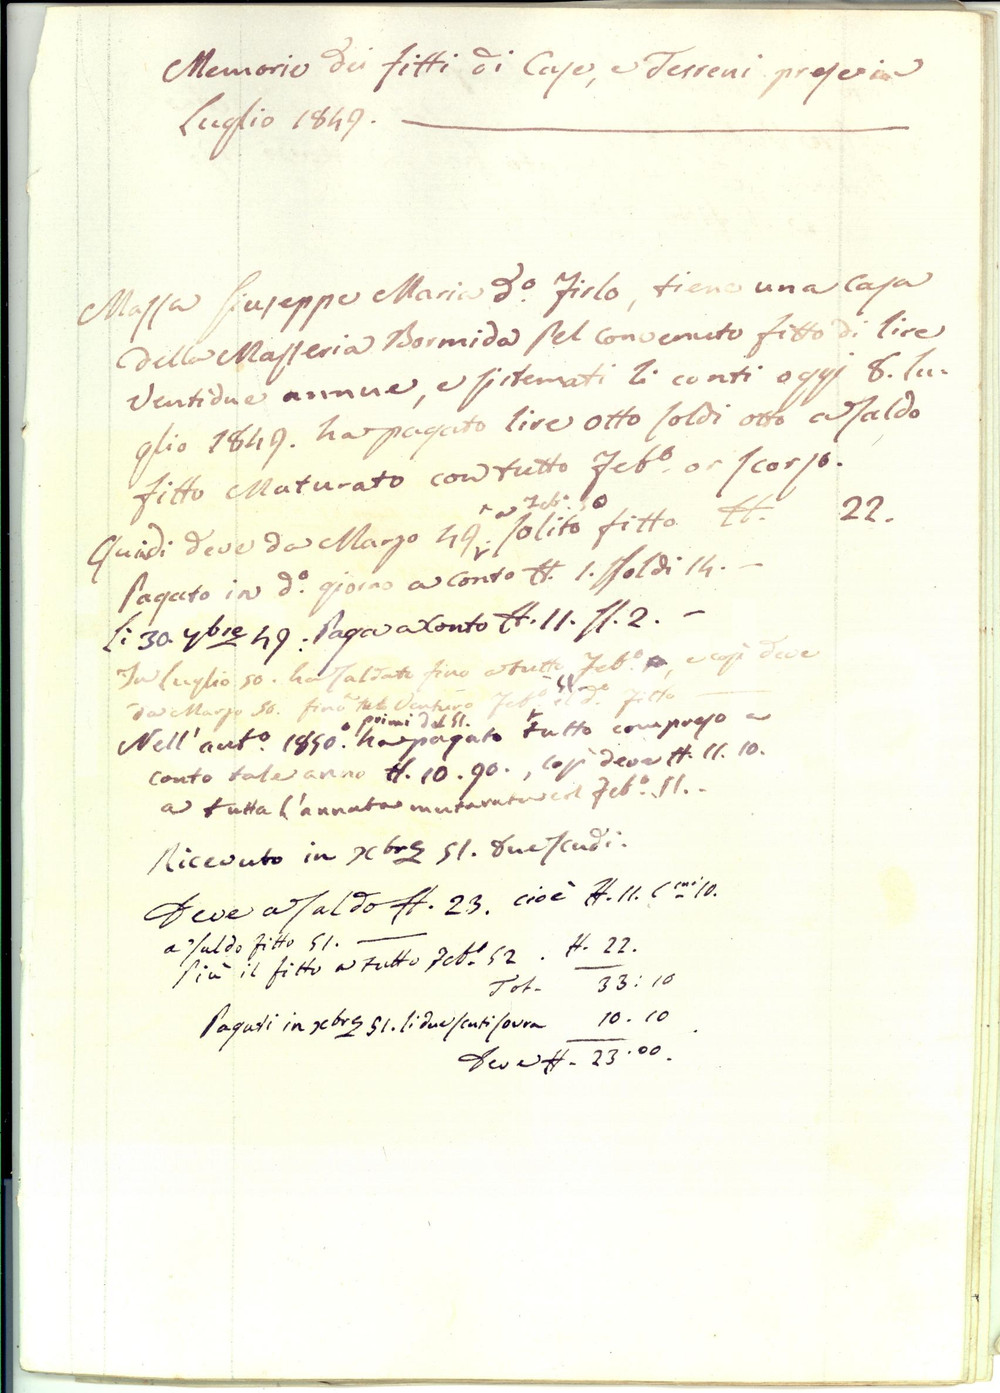 Memorie dei fitti di Case, e Terreni prese in
Luglio 1849.
Massa Giuseppe Maria d.° Firlo, tiene una casa
della Masseria Bormida pel convenuto fitto di lire
ventidue annue, e sistemati li conti oggi 8. lu-
glio 1849. ha pagato lire otto soldi otto a saldo
fitto maturato con tutto Feb.° or scorso.
a Feb.° 50
Quindi deve da Marzo 49. solito fitto ₶. 22.
Pagato in d.° giorno a conto ₶. 1. soldi 14. -
li 30. 9bre 49: Paga a Conto ₶. 11. s. 2. -
In luglio 50. ha saldato fino a tutto Feb.°, e così deve
da Marzo 50. fino tutto Venturo Feb.° 51 il d.° fitto
primi del 51.
Nell' aut.° 1850. ha pagato tutto compreso a
conto tale anno ₶. 10. 90., così deve ₶. 11. 10.
a tutta l'annata maturata col Feb.° 51. -
Ricevuto in xbre 51. due scudi.
Deve a saldo ₶. 23. cioè ₶. 11. c.mi 10.
a saldo fitto 51.
Più il fitto a tutto Feb.° 52. ₶. 22.
Tot. 33:10
Pagati in xbre 51. li due scuti sovra 10.10
Deve ₶. 23.00.